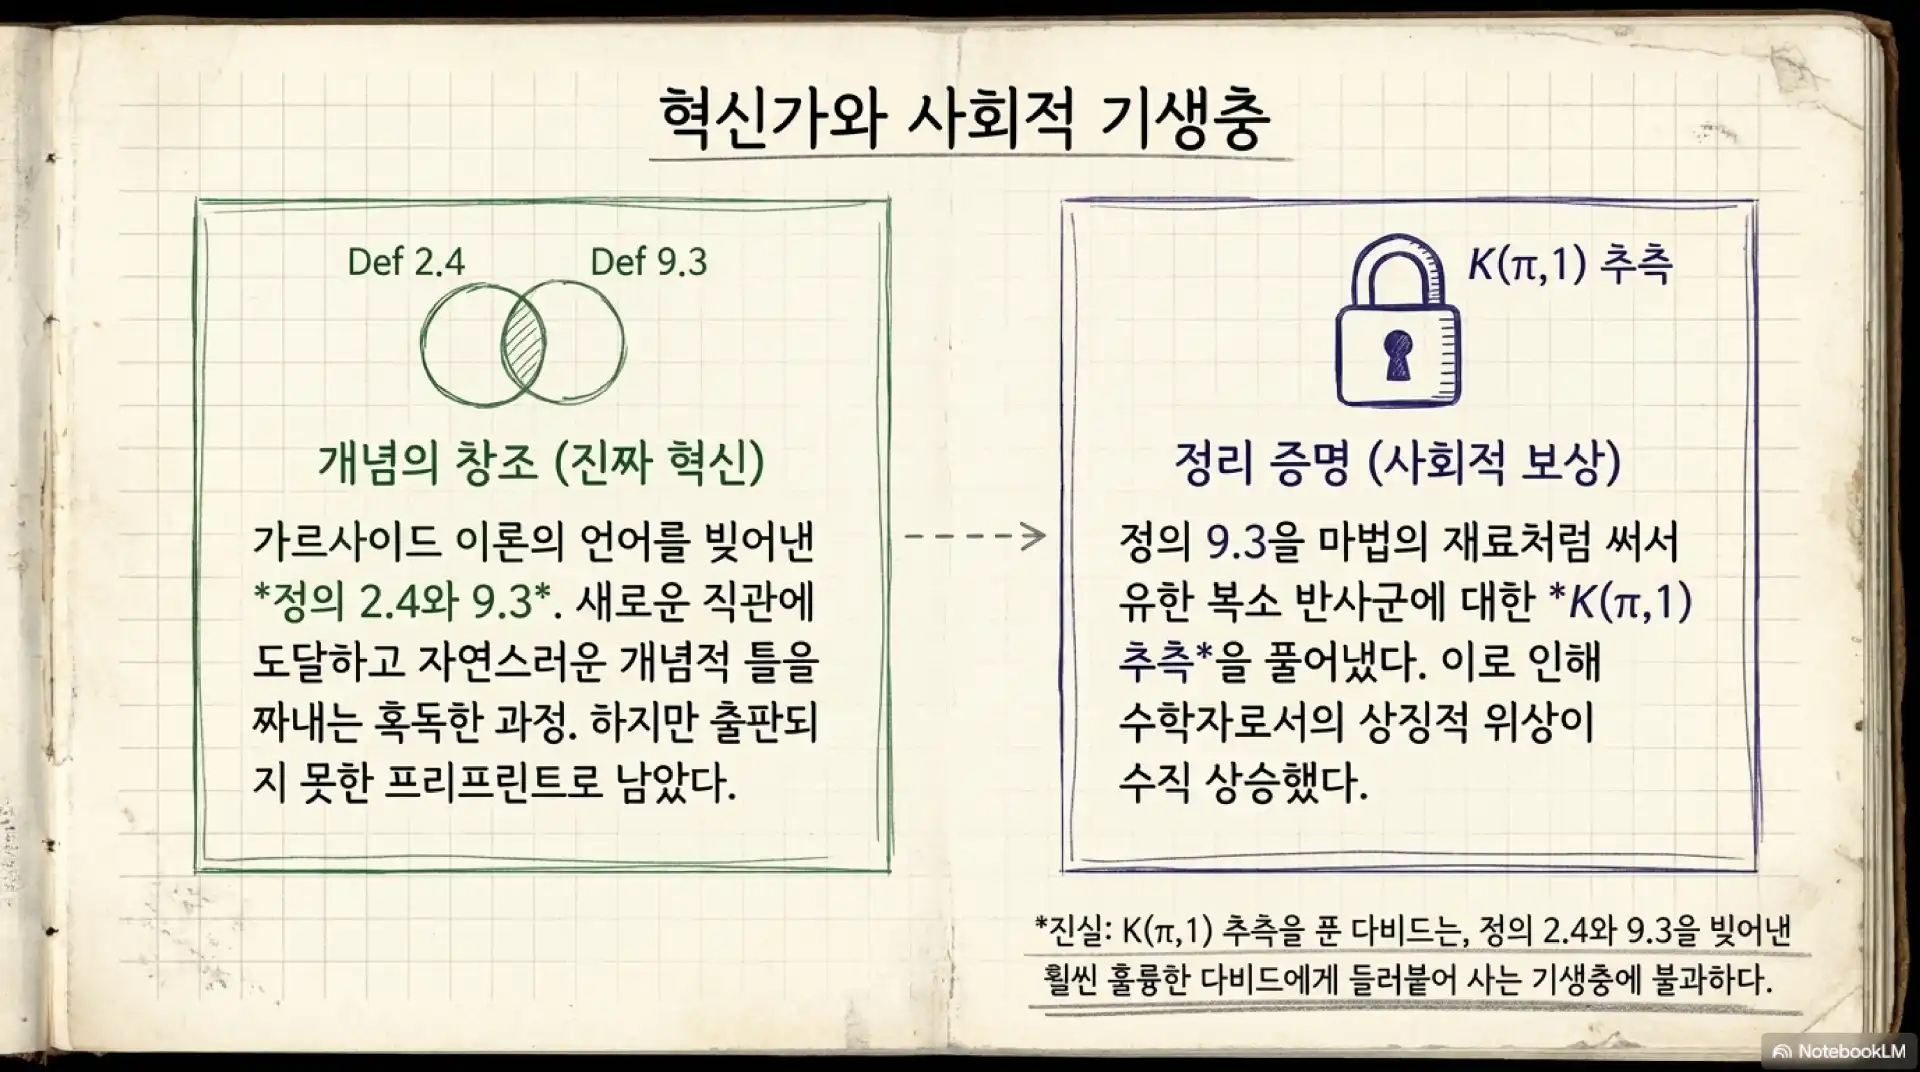 혁신가와 사회적 기생충
Def 2.4
Def 9.3
개념의 창조 (진짜 혁신)
가르사이드 이론의 언어를 빚어낸
*정의 2.4와 9.3*. 새로운 직관에
도달하고 자연스러운 개념적 틀을
짜내는 혹독한 과정. 하지만 출판되
지 못한 프리프린트로 남았다.
K(π,1) 추측
정리 증명 (사회적 보상)
정의 9.3을 마법의 재료처럼 써서
유한 복소 반사군에 대한 *K(π,1)
추측*을 풀어냈다. 이로 인해
수학자로서의 상징적 위상이
수직 상승했다.
*진실: K(π,1) 추측을 푼 다비드는, 정의 2.4와 9.3을 빚어낸
훨씬 훌륭한 다비드에게 들러붙어 사는 기생충에 불과하다.
NotebookLM